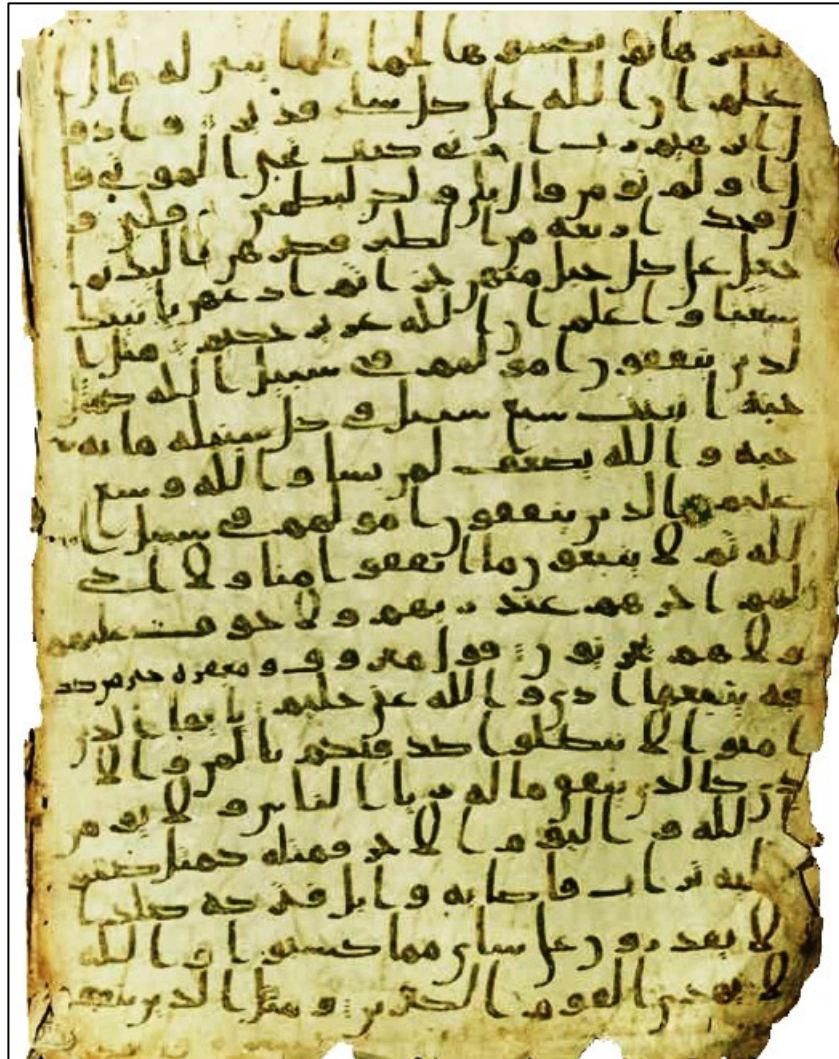 ننشزها ثم نكسوها لحما فلما تبين له قال ا
علم ان الله على كل شاي قدير واذ قا
ل ابرهيم رب ارني كيف تحي الموتى قا
ل اولم تومن قال بلى ولكن ليطمئن قلبي قا
ل فخذ اربعة من الطير فصرهن اليك ثم ا
جعل على كل جبل منهن جزا ثم ادعهن ياتينك
سعيا واعلم ان الله عزيز حكيم مثل ا
لذين ينفقون امولهم في سبيل الله كمثل
حبة انبتت سبع سنبل في كل سنبلة مايه
حبة والله يضعف لمن يشا والله وسع
عليم الذين ينفقون امولهم في سبيل ا
لله ثم لا يتبعون ما انفقوا منا ولا اذى
لهم اجرهم عند ربهم ولا خوف عليهم
ولا هم يحزنون قول معروف ومغفرة خير من صد
قة يتبعها اذى والله غني حليم يايها الذين
امنوا لا تبطلوا صدقتكم بالمن والا
ذى كالذي ينفق ماله ريا الناس ولا يومن
بالله واليوم الاخر فمثله كمثل صفون
عليه تراب فاصابه وابل فتركه صلدا
لا يقدرون على شاي مما كسبوا والله
لا يهدي القوم الكفرين ومثل الذين ينفقو